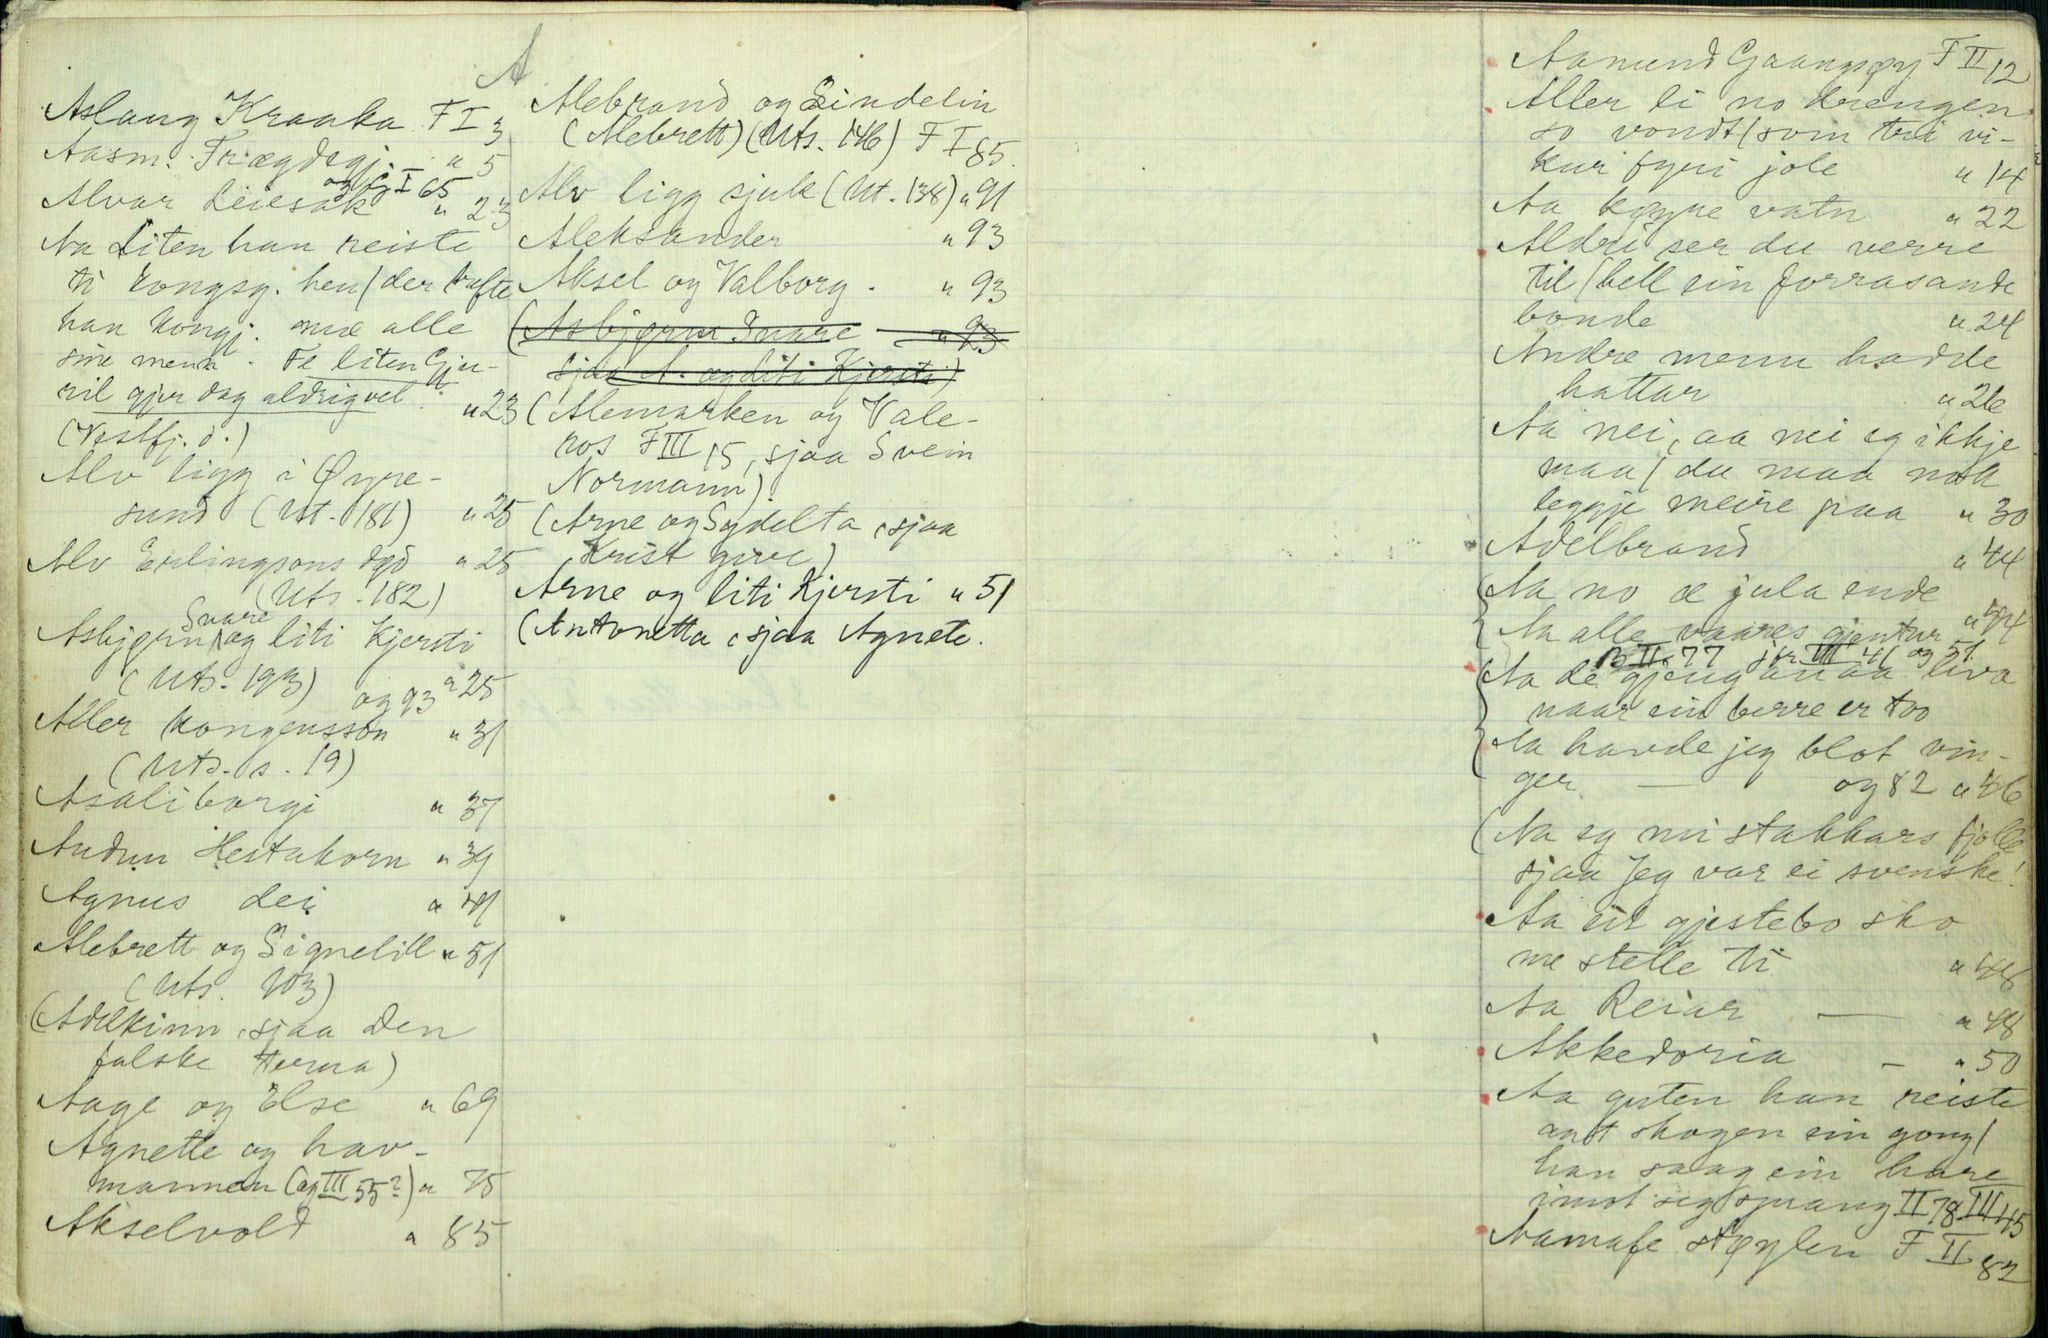 A
Aslaug Kraaka F I 3
Aasm. Frægdegj. " 5
og I 65
Alvar Leiesak " 23
Aa Liten han reiste
ti kongsg. hen/der trafte
han kongj. mæ alle
sine menn. Te liten Gju-
ril gjer dag aldrig vel " 23
(Vestfj.d.)
Alv ligg i Øyre-
sund (Ut. 181) " 25
Alv Erlingsons dgd " 25
(Uts. 182)
Snare
Asbjørn og liti Kjersti
(Uts. 193) og 93 " 25
Aller kongensson " 31
(Uts. s. 19)
Asaliborgi " 37
Audun Hestakorn " 39
Agnus dei " 41
Alebrett og Signelill " 51
(Uts. 103)
(Adelkinn, sjaa Den
falske terna)
Aage og Else " 69
Agnette og hav-
mannen (og III 55?) " 75
Akselvold " 85
Alebrand og Lindelin
(Alebrett) (Uts. 146) F I 85.
Alv ligg sjuk (Ut. 138) " 91
Aleksander " 93
Aksel og Valborg. " 93
(Asbjørn Snare " 93
sjaa A. og liti Kjersti)
(Alemarken og Vale-
ros F III 15, sjaa Svein
Normann)
(Arne og Sydelta, sjaa
Krist give)
Arne og liti Kjersti " 51
(Antonetta, sjaa Agnete.
Aamund Gaangspy F II 12
Aller li no drengen
so vondt/som tri vi-
kur fyri jole " 14
Aa køyre vatn " 22
Aldri ser du verre
til/hell ein forrasande
bonde " 24
Andre menn hadde
hattar " 26
Aa nei, aa nei eg ikkje
maa/du maa nok
leggje meire paa " 30
Adelbrand " 44
(Aa no æ jula ende
Aa alle vaares gjentur " 44
B II 77 III 41 og 51
(Aa de gjeng an aa liva
naar ein berre er too
Aa havde jeg blot vin-
ger — og 82 " 46
(Aa eg mi stakkars fjolle
sjaa Jeg var ei svenske!
Aa eit gjestebo sko
me stelle ti " 48
Aa Reiar — " 48
Akkedoria — " 50
Aa guten han reiste
aat skogen ein gong/
han saag ein hare
imot seg sprang II 78 III 45
Aamafe støylen F II 82